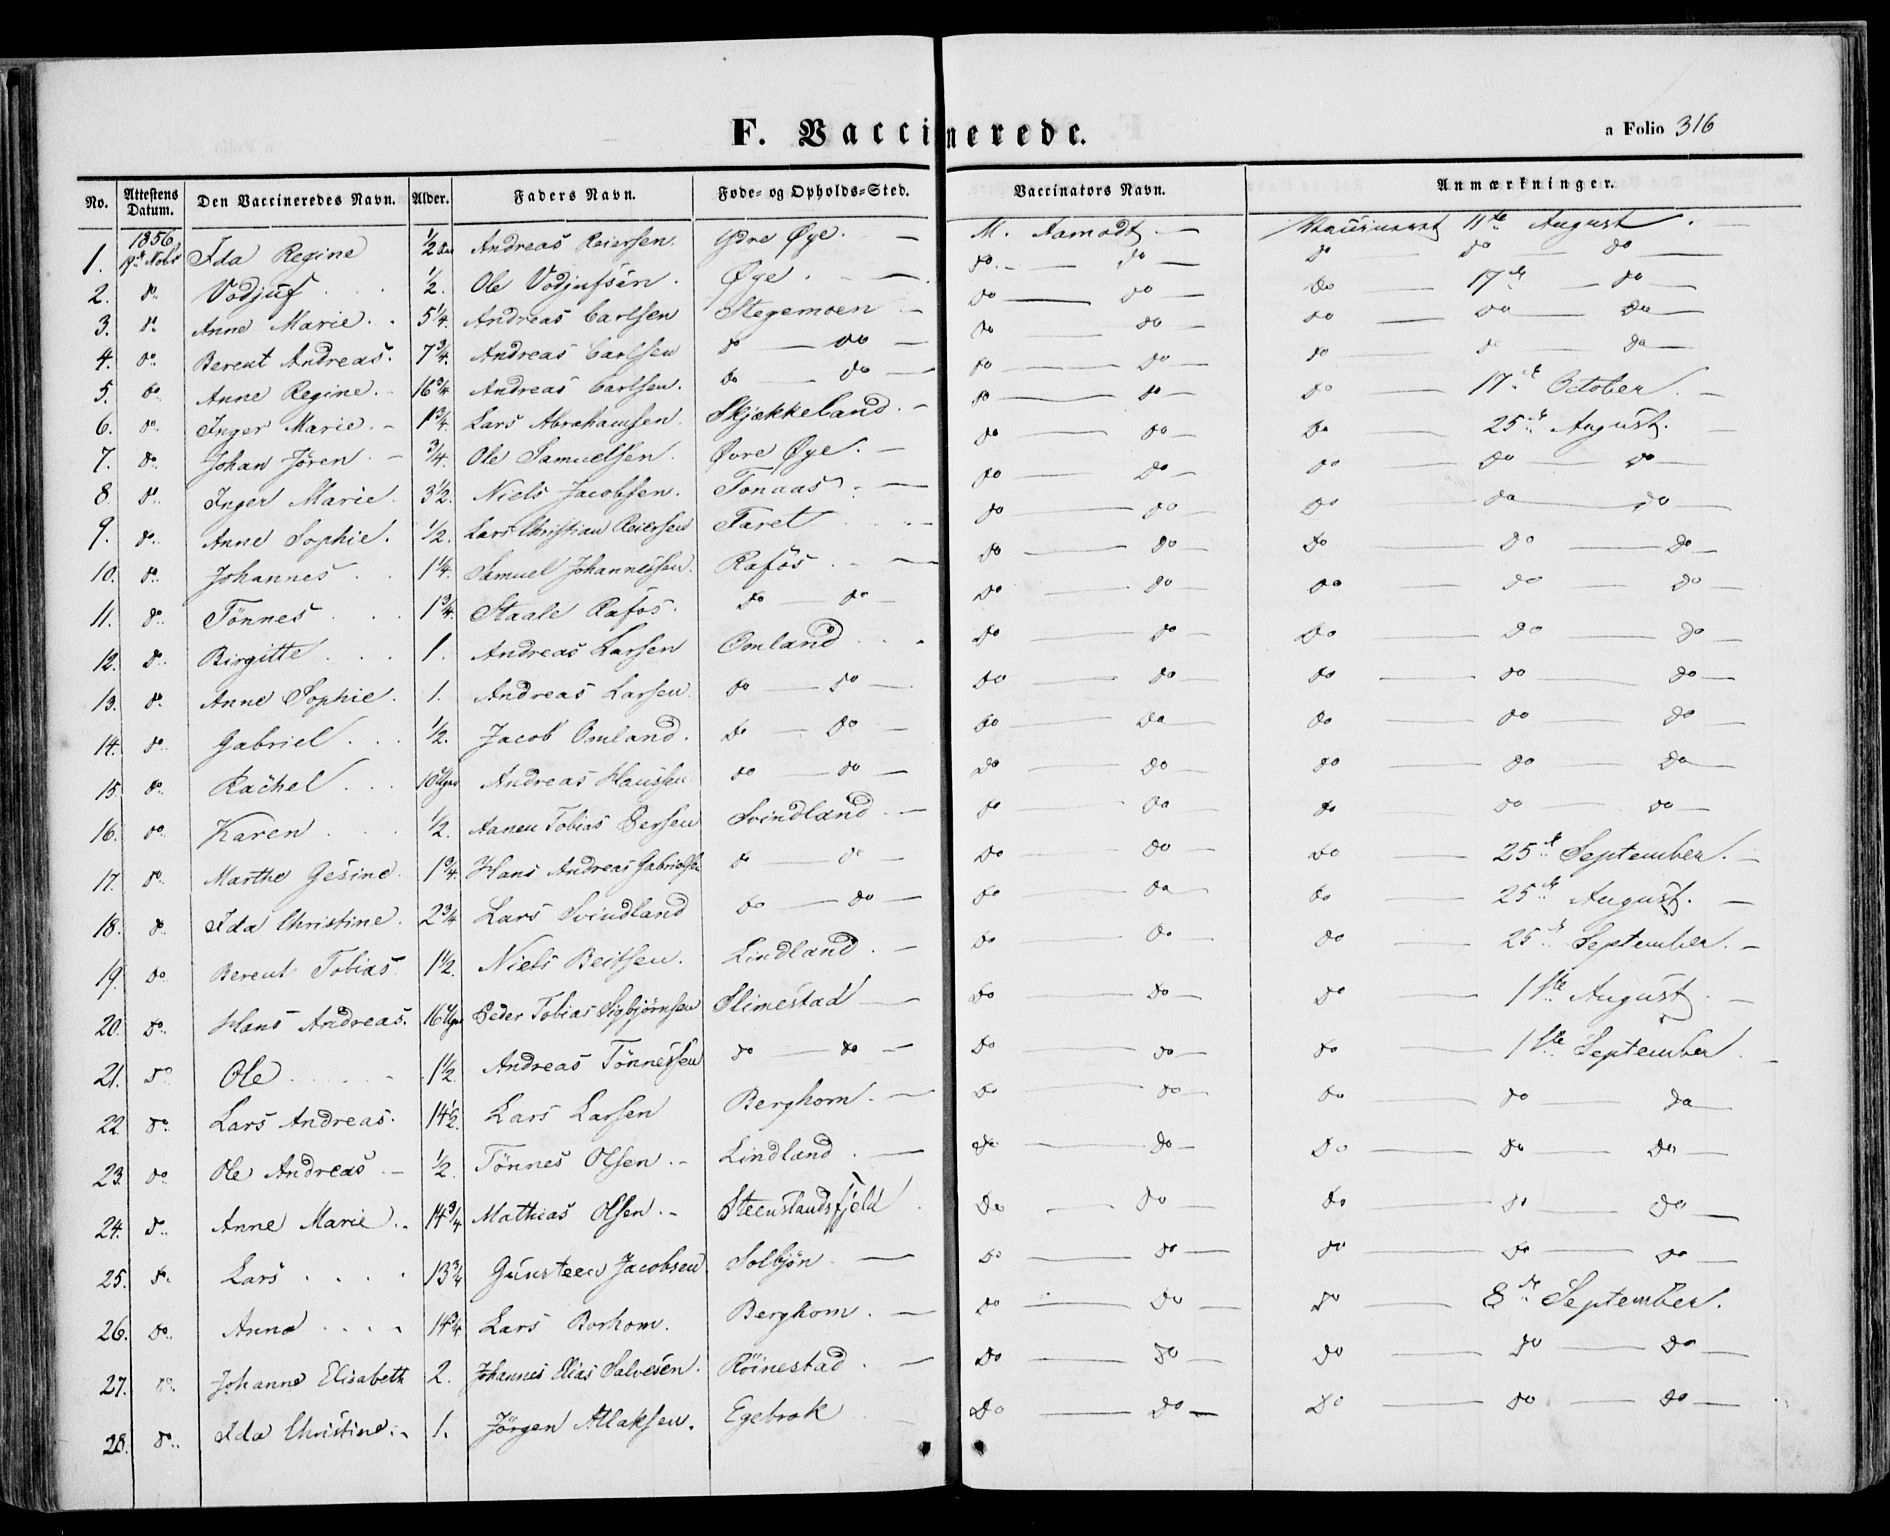 F. Vaccinerede.
a Folio 316
No. Attestens Datum. Den Vaccineredes Navn. Alder. Faders Navn. Føde- og Opholds-Sted. Vaccinators Navn. Anmærkninger.
1856
1. Nobr Ida Regine ½ Andreas Reiersen. Ydre Øye. — M. Aamodt — Vaccineret 11te August. —
2. do. Vodjuf ½. Ole Vodjufsen. Øye. — do. — do — do — do — do —
3. do. Anne Marie. 5¼. Andreas Carlsen Stegemoen — do — do — do — 17de — do —
4. do. Berent Andreas. 7¾. Andreas Carlsen do — do — do — do — do — do — do —
5. do. Anne Regine. 16¾. Andreas Carlsen. do — do — do — do — do — do — do —
6. do. Inger Marie. – 1¾. Lars Abrahamsen. Skjekkeland. – do — do — do — 17de October. —
7. do. Johan Jören. – ¾. Ole Samuelsen. Øvre Øye. — do — do — do — 25de August. —
8. do. Inger Marie. 3½. Niels Jacobsen. Tonaas. — do — do — do — do — do —
9. do. Anne Sophie. ½. Lars Christian Reiersen Faret — do — do — do — do — do
10. do. Johannes 1¼. Samuel Johannessen. Rafos. — do — do — do — do — do —
11. do. Tönnes 1¾. Staale Rafos. do — do — do — do — do — do — do —
12. do. Birgitte 1. Andreas Larsen Omland do — do — do — do — do —
13. do. Anne Sophie. 1. Andreas Larsen do — do — do — do — do — do — do —
14. do. Gabriel ½. Jacob Omland. do — do — do — do — do — do — do —
15. do. Rachel 10 Uger Andreas Hansen do — do — do — do — do — do — do —
16. do. Karen ½. Aanen Tobias Persen Svindland. — do — do — do — do — do —
17. do. Marthe Gesine. 1¾. Hans Andreas Gabrielsen do — do — do — do — do — 25de September. —
18. do Ida Christine. 2¾ Lars Svindland do — do — do — do — do — 25de August. —
19. do Berent Tobias 1½. Niels Beitsen. Lindland. — do — do — do — 25de September. —
20. do. Hans Andreas. 16 Uger Peder Tobias Sigbjørnsen Slimestad — do — do — do — 1ste August. —
21. do Ole 1½ Andreas Tönnessen do — do — do — do — do — 1ste September. —
22. do. Lars Andreas. 14½. Lars Larsen Berghom. — do — do — do — do — do
23. do. Ole Andreas – ½. Tönnes Olsen. – Lindland. — do — do — do — do — do —
24. do. Anne Marie. 14¾ Mathias Olsen. – Steenslandsfjeld. do — do — do — do — do —
25. do. Lars 13¾ Gunsteen Jacobsen. Solbjön. — do — do — do — do — do —
26. do. Anne 14¾ Lars Borhom. Berghom. — do — do — do — 8de September.
27. do. Johanne Elisabeth 2. Johannes Elias Salvesen. Röinestad. — do — do — do — do — do
28. do. Ida Christine. – 1. Jörgen Atlaksen. Egebrok do — do — do — do — do —